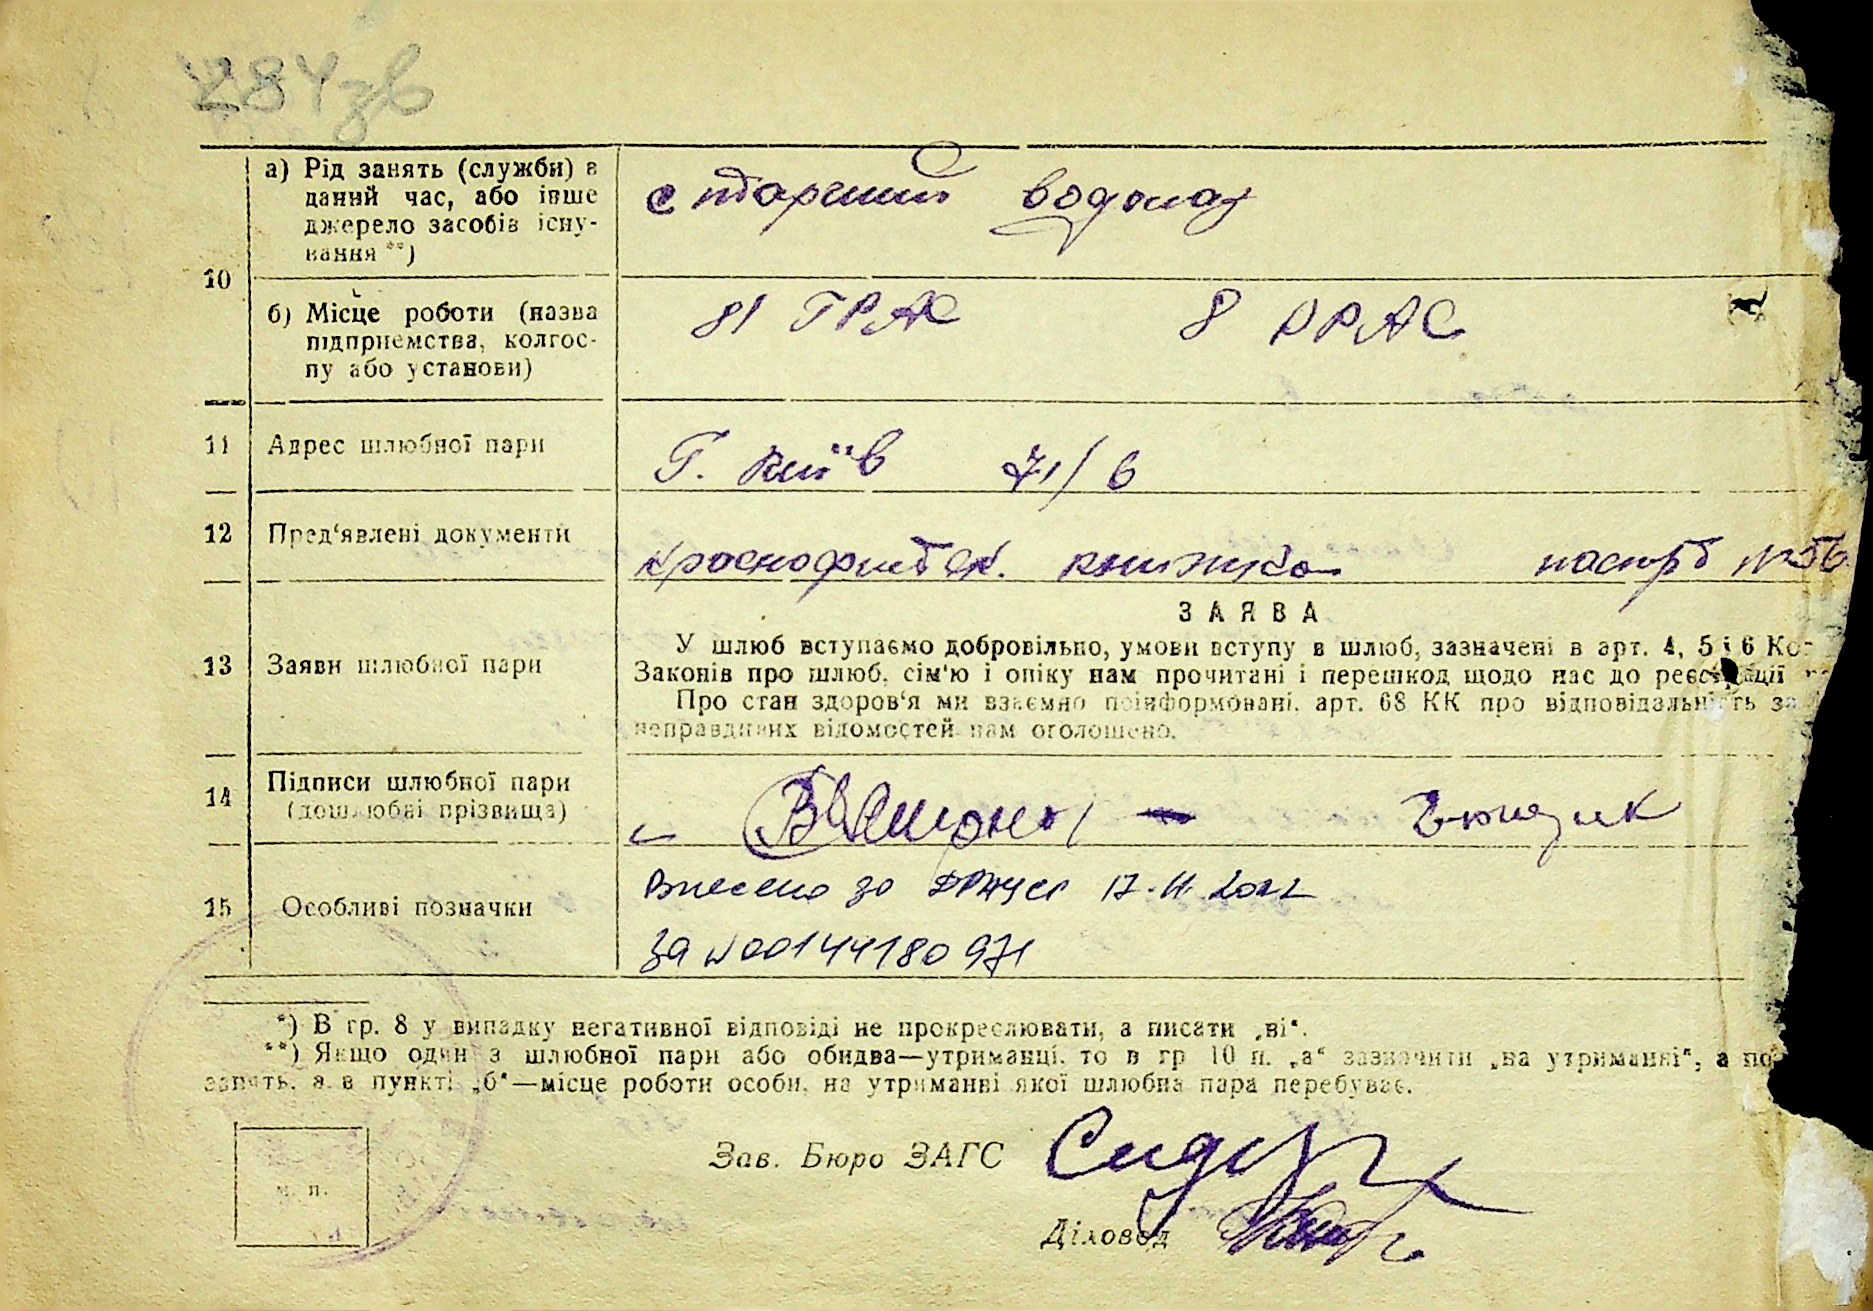 284зв
а) Рід занять (служби) в
даний час, або інше
джерело засобів існу-
вання **)
старший водолаз
10
б) Місце роботи (назва
підприємства, колгос-
пу або установи)
81 ГРАС 8 РРАС
11 Адрес шлюбної пари
Г. Київ 71/6
12 Пред'явлені документи
Краснофлотск. книжка паспорт №
ЗАЯВА
13 Заяви шлюбної пари
У шлюб вступаємо добровільно, умови вступу в шлюб, зазначені в арт. 4, 5 і 6 Ко-
Законів про шлюб, сім'ю і опіку нам прочитані і перешкод щодо нас до реєстрації
Про стан здоров'я ми взаємно поінформовані, арт. 68 КК про відповідальність за
неправдивих відомостей нам оголошено.
14 Підписи шлюбної пари
(дошлюбні прізвища)
15 Особливі позначки
Внесено до ДРАЦС 17.11.2022
За №00144180971
*) В гр. 8 у випадку негативної відповіді не прокреслювати, а писати „ні“.
**) Якщо один з шлюбної пари або обидва—утриманці, то в гр 10 п. „а“ зазначити „на утриманні“, а по
занять, а в пункті „б“—місце роботи особи, на утриманні якої шлюбна пара перебуває.
Зав. Бюро ЗАГС
м. п.
Діловод